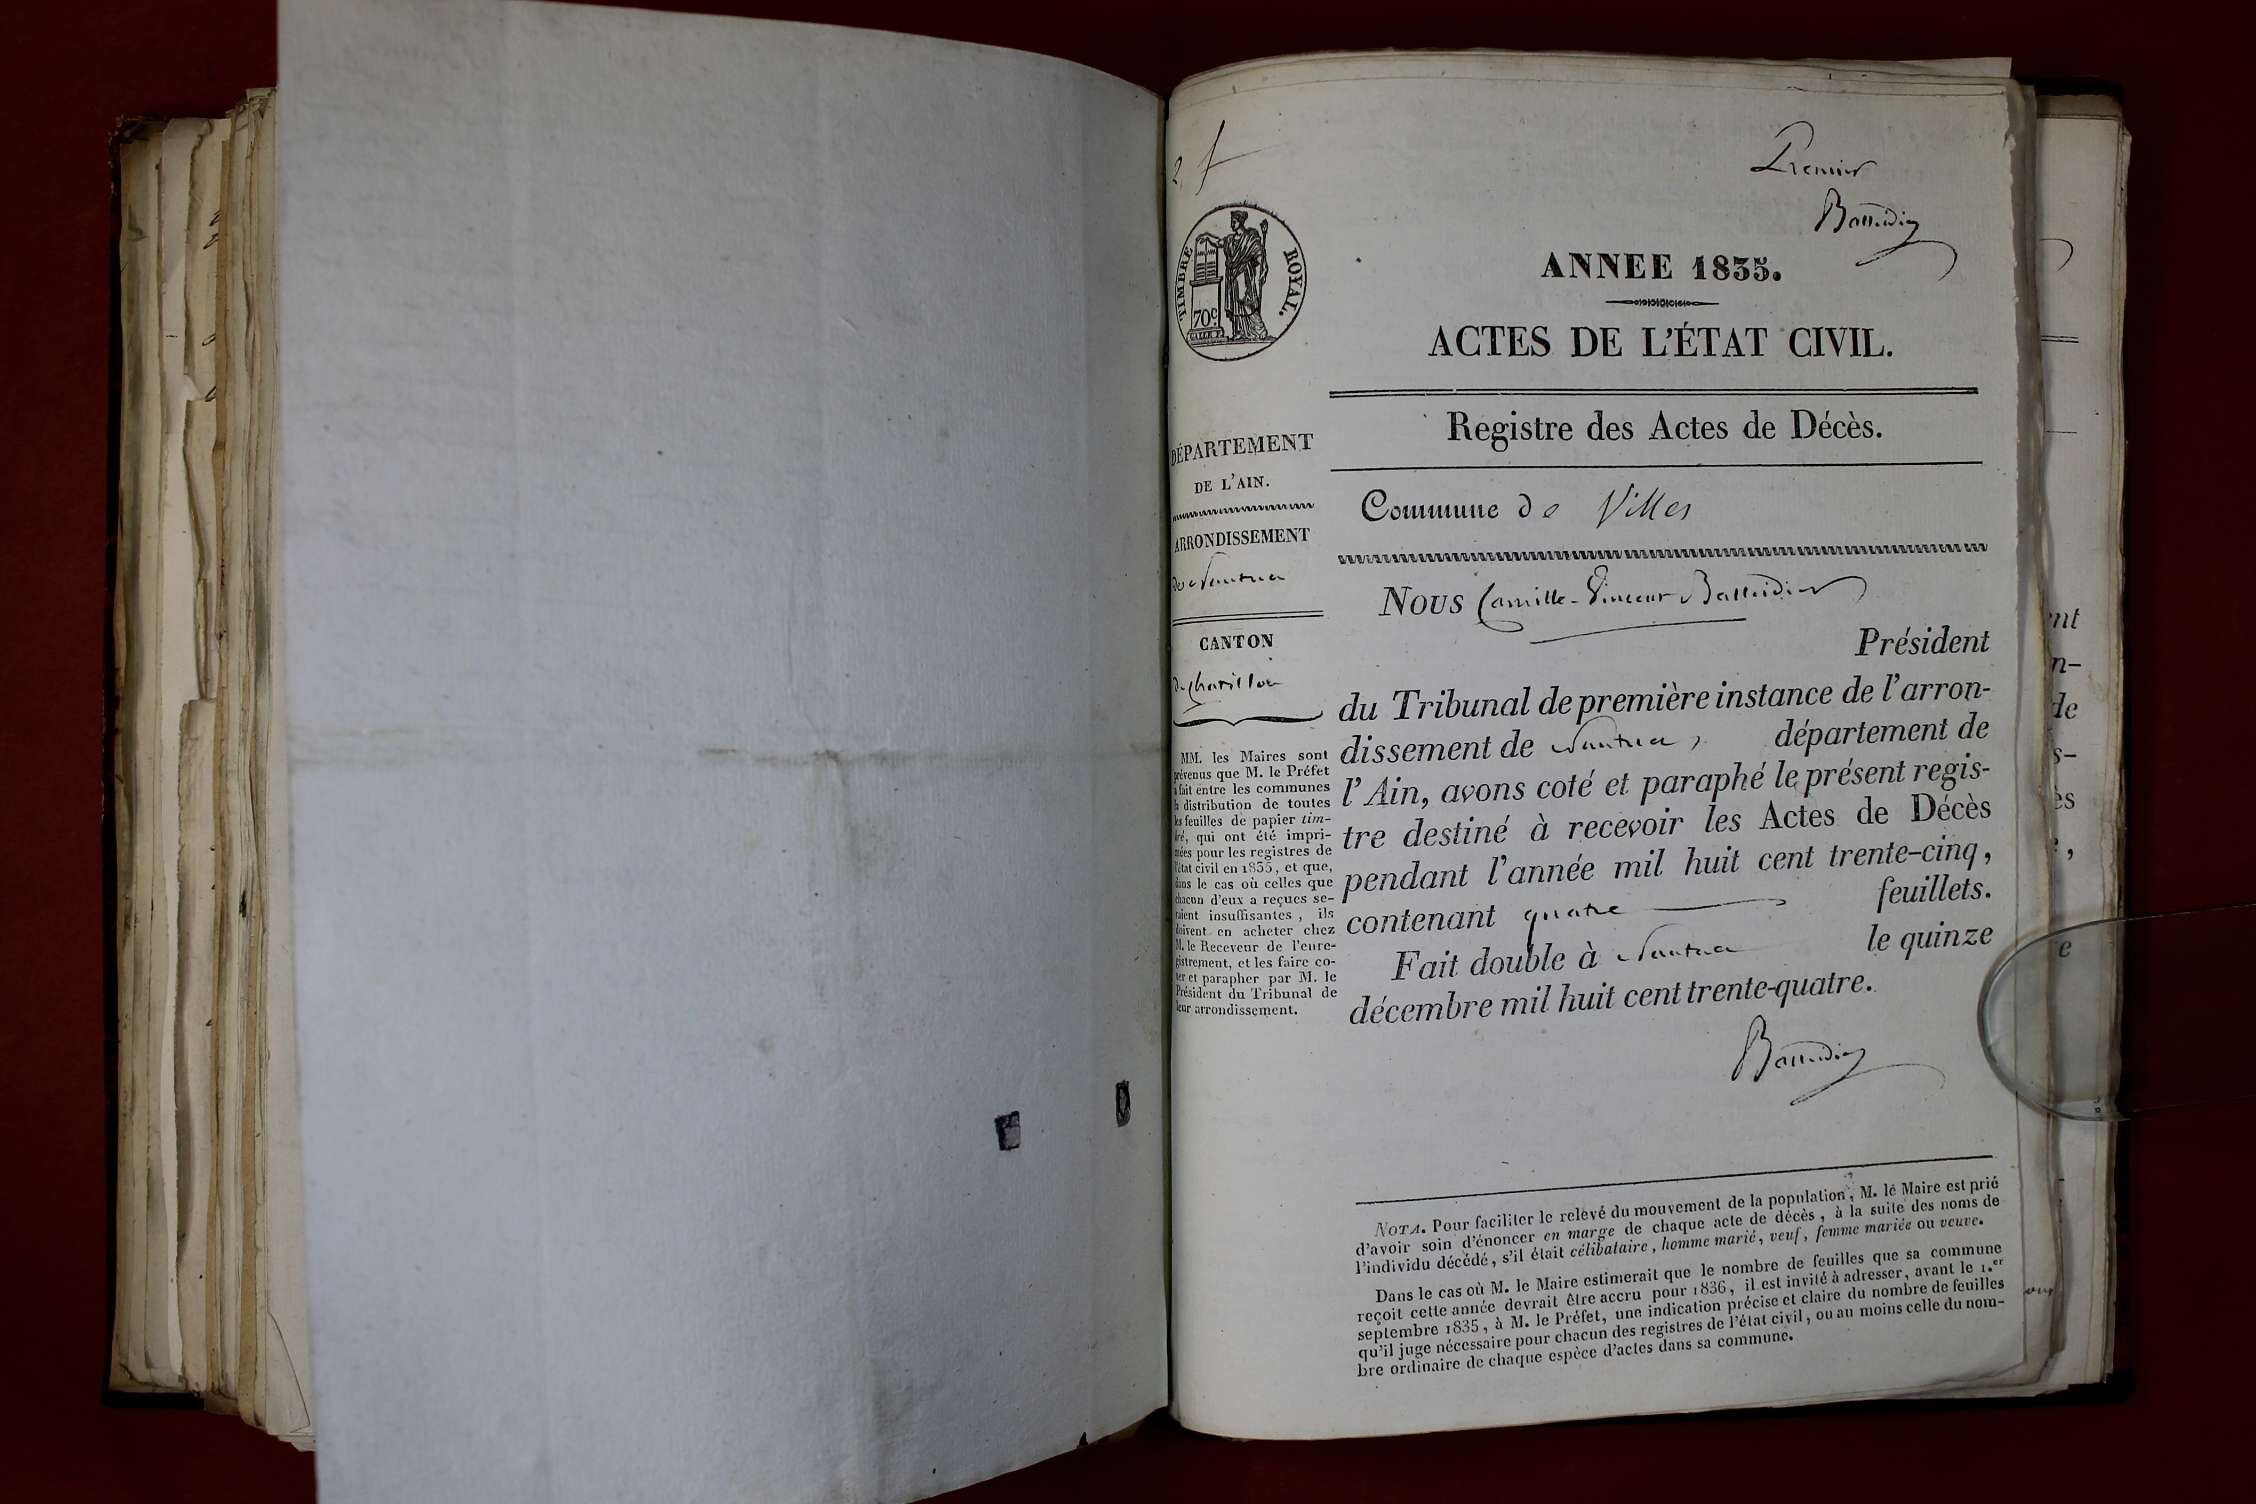 Premier
Bastidin
ANNEE 1835.
ACTES DE L'ÉTAT CIVIL.
Registre des Actes de Décès.
Commune de Villes
Nous Camille-Vincent
Président
du Tribunal de première instance de l'arron-
dissement de Nantua, département de
l'Ain, avons coté et paraphé le présent regis-
tre destiné à recevoir les Actes de Décès
pendant l'année mil huit cent trente-cinq,
contenant quatre feuillets.
Fait double à Nantua le quinze
décembre mil huit cent trente-quatre.
NOTA. Pour faciliter le relevé du mouvement de la population, M. le Maire est prié
d'avoir soin d'énoncer en marge de chaque acte de décès, à la suite des noms de
l'individu décédé, s'il était célibataire, homme marié, veuf, femme mariée ou veuve.
Dans le cas où M. le Maire estimerait que le nombre de feuilles que sa commune
reçoit cette année devrait être accru pour 1836, il est invité à adresser, avant le 1.er
septembre 1835, à M. le Préfet, une indication précise et claire du nombre de feuilles
qu'il juge nécessaire pour chacun des registres de l'état civil, ou au moins celle du nom-
bre ordinaire de chaque espèce d'actes dans sa commune.
TIMBRE ROYAL.
70c
DÉPARTEMENT
DE L'AIN.
ARRONDISSEMENT
de Nantua
CANTON
de Chatillon
MM. les Maires sont
prévenus que M. le Préfet
a fait entre les communes
la distribution de toutes
les feuilles de papier tim-
bré, qui ont été impri-
mées pour les registres de
l'état civil en 1835, et que,
dans le cas où celles que
chacun d'eux a reçues se-
raient insuffisantes, ils
doivent en acheter chez
M. le Receveur de l'enre-
gistrement, et les faire co-
ter et parapher par M. le
Président du Tribunal de
leur arrondissement.